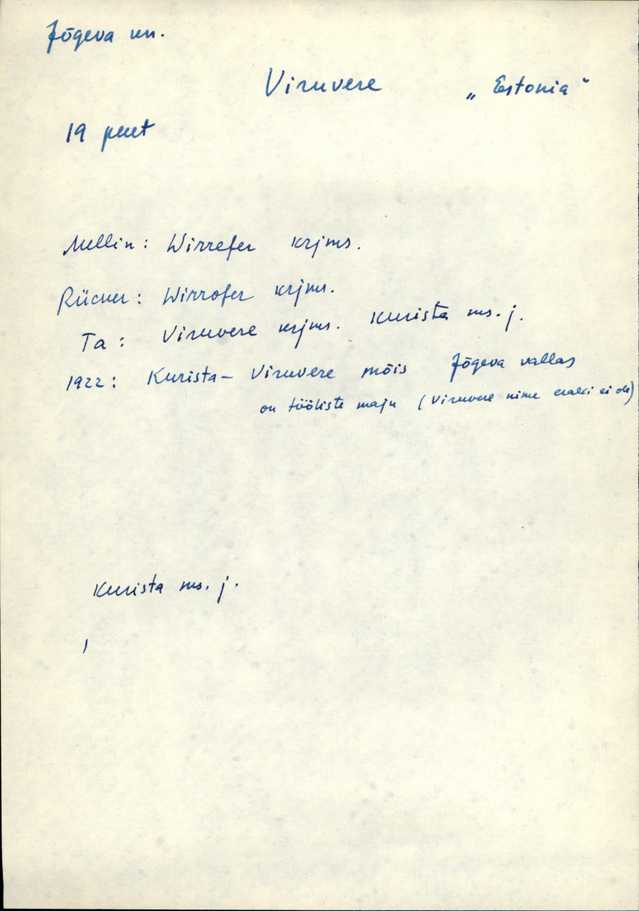 Jõgeva
Viruvere „Estonia"
19 peret
Mellin: Wirrefer krjms.
Rücker: Wirrofer krjms.
Ta: Viruvere krjms. Kurista ms. j.
1922: Kurista – Viruvere mõis Jõgeva vallas
on tööliste maju (Viruvere nime eraldi ei ole)
Kurista ms. j.